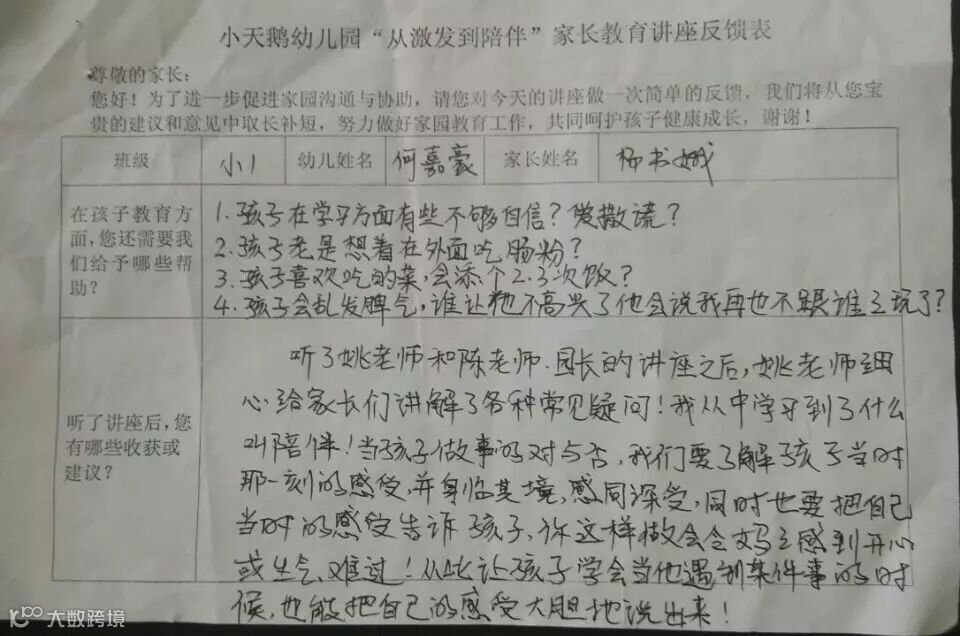 小天鹅幼儿园“从激发到陪伴”家长教育讲座反馈表
尊敬的家长:
您好！为了进一步促进家园沟通与协助，请您对今天的讲座做一次简单的反馈，我们将从您宝
贵的建议和意见中取长补短，努力做好家园教育工作，共同呵护孩子健康成长，谢谢！
班级 小1 幼儿姓名 何嘉豪 家长姓名 杨书娥
在孩子教育方面，您还需要我们给予哪些帮助？
1.孩子在学习方面有些不够自信？爱撒谎？
2.孩子老是想着在外面吃肠粉？
3.孩子喜欢吃的菜，会添个2.3次饭？
4.孩子会乱发脾气，谁让他不高兴了他会说我再也不跟谁々玩了？
听了讲座后，您有哪些收获或建议？
听了姚老师和陈老师.园长的讲座之后，姚老师细
心给家长们讲解了各种常见疑问！我从中学习到了什么
叫陪伴！当孩子做事的对与否，我们要了解孩子当时
那一刻的感受，并身临其境，感同深受，同时也要把自己
当时的感受告诉孩子，你这样做会令妈々感到开心
或生气、难过！从此让孩子学会当他遇到某件事的时
候，也能把自己的感受大胆地说出来！
大数跨境